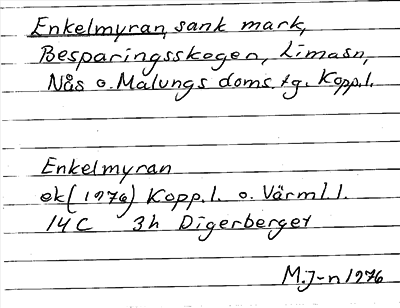 Enkelmyran, sank mark,
Besparingsskogen, Limasn,
Nås o. Malungs doms.tg. Kopp.l.
Enkelmyran
ek (1976) Kopp.l. o. Värml.l.
14C 3h Digerberget
M.J-n 1976